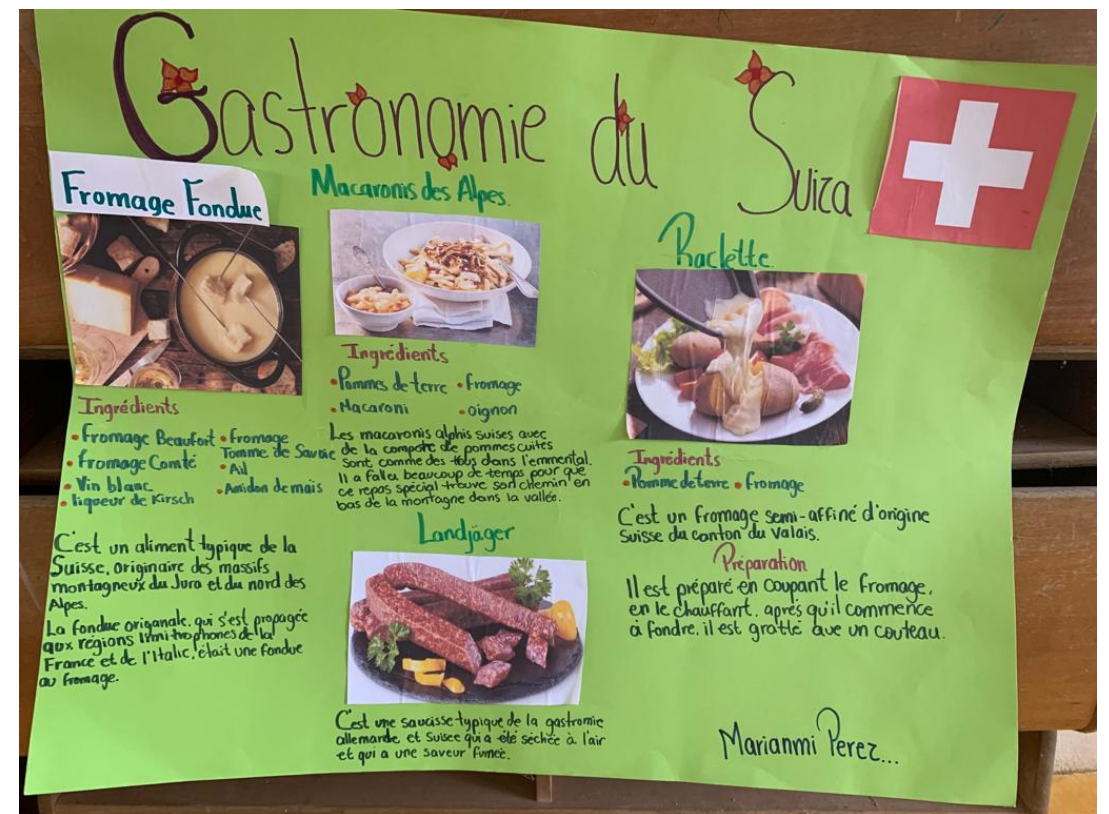 Gastronomie du Suiza
Fromage Fondue
Ingrédients
• Fromage Beaufort • Fromage
Tomme de Savoie
• Fromage Comté
• Ail
• Vin blanc
• Amidon de mais
• liqueur de Kirsch
C'est un aliment typique de la
Suisse, originaire des massifs
montagneux du Jura et du nord des
Alpes.
La fondue origanale, qui s'est propagée
aux régions limitrophones de la
France et de l'Italie, était une fondue
au fromage.
Macaronis des Alpes.
Ingrédients
• Pommes de terre • fromage
• Macaroni • oignon
Les macaronis alphis suises avec
de la compote de pommes cuites
sont comme des tous dans l'emmental.
Il a fallu beaucoup de temps pour que
ce repas spécial trouve son chemin en
bas de la montagne dans la vallée.
Landjäger
C'est une saucisse typique de la gastromie
allemande et Suisee qui a été séchée à l'air
et qui a une saveur fumée.
Raclette
Ingrédients
• Pomme de terre • fromage
C'est un fromage semi-affiné d'origine
Suisse du canton du Valais.
Préparation
Il est préparé en coupant le fromage,
en le chauffant, aprés qu'il commence
à fondre, il est gratté ave un couteau.
Marianmi Perez...